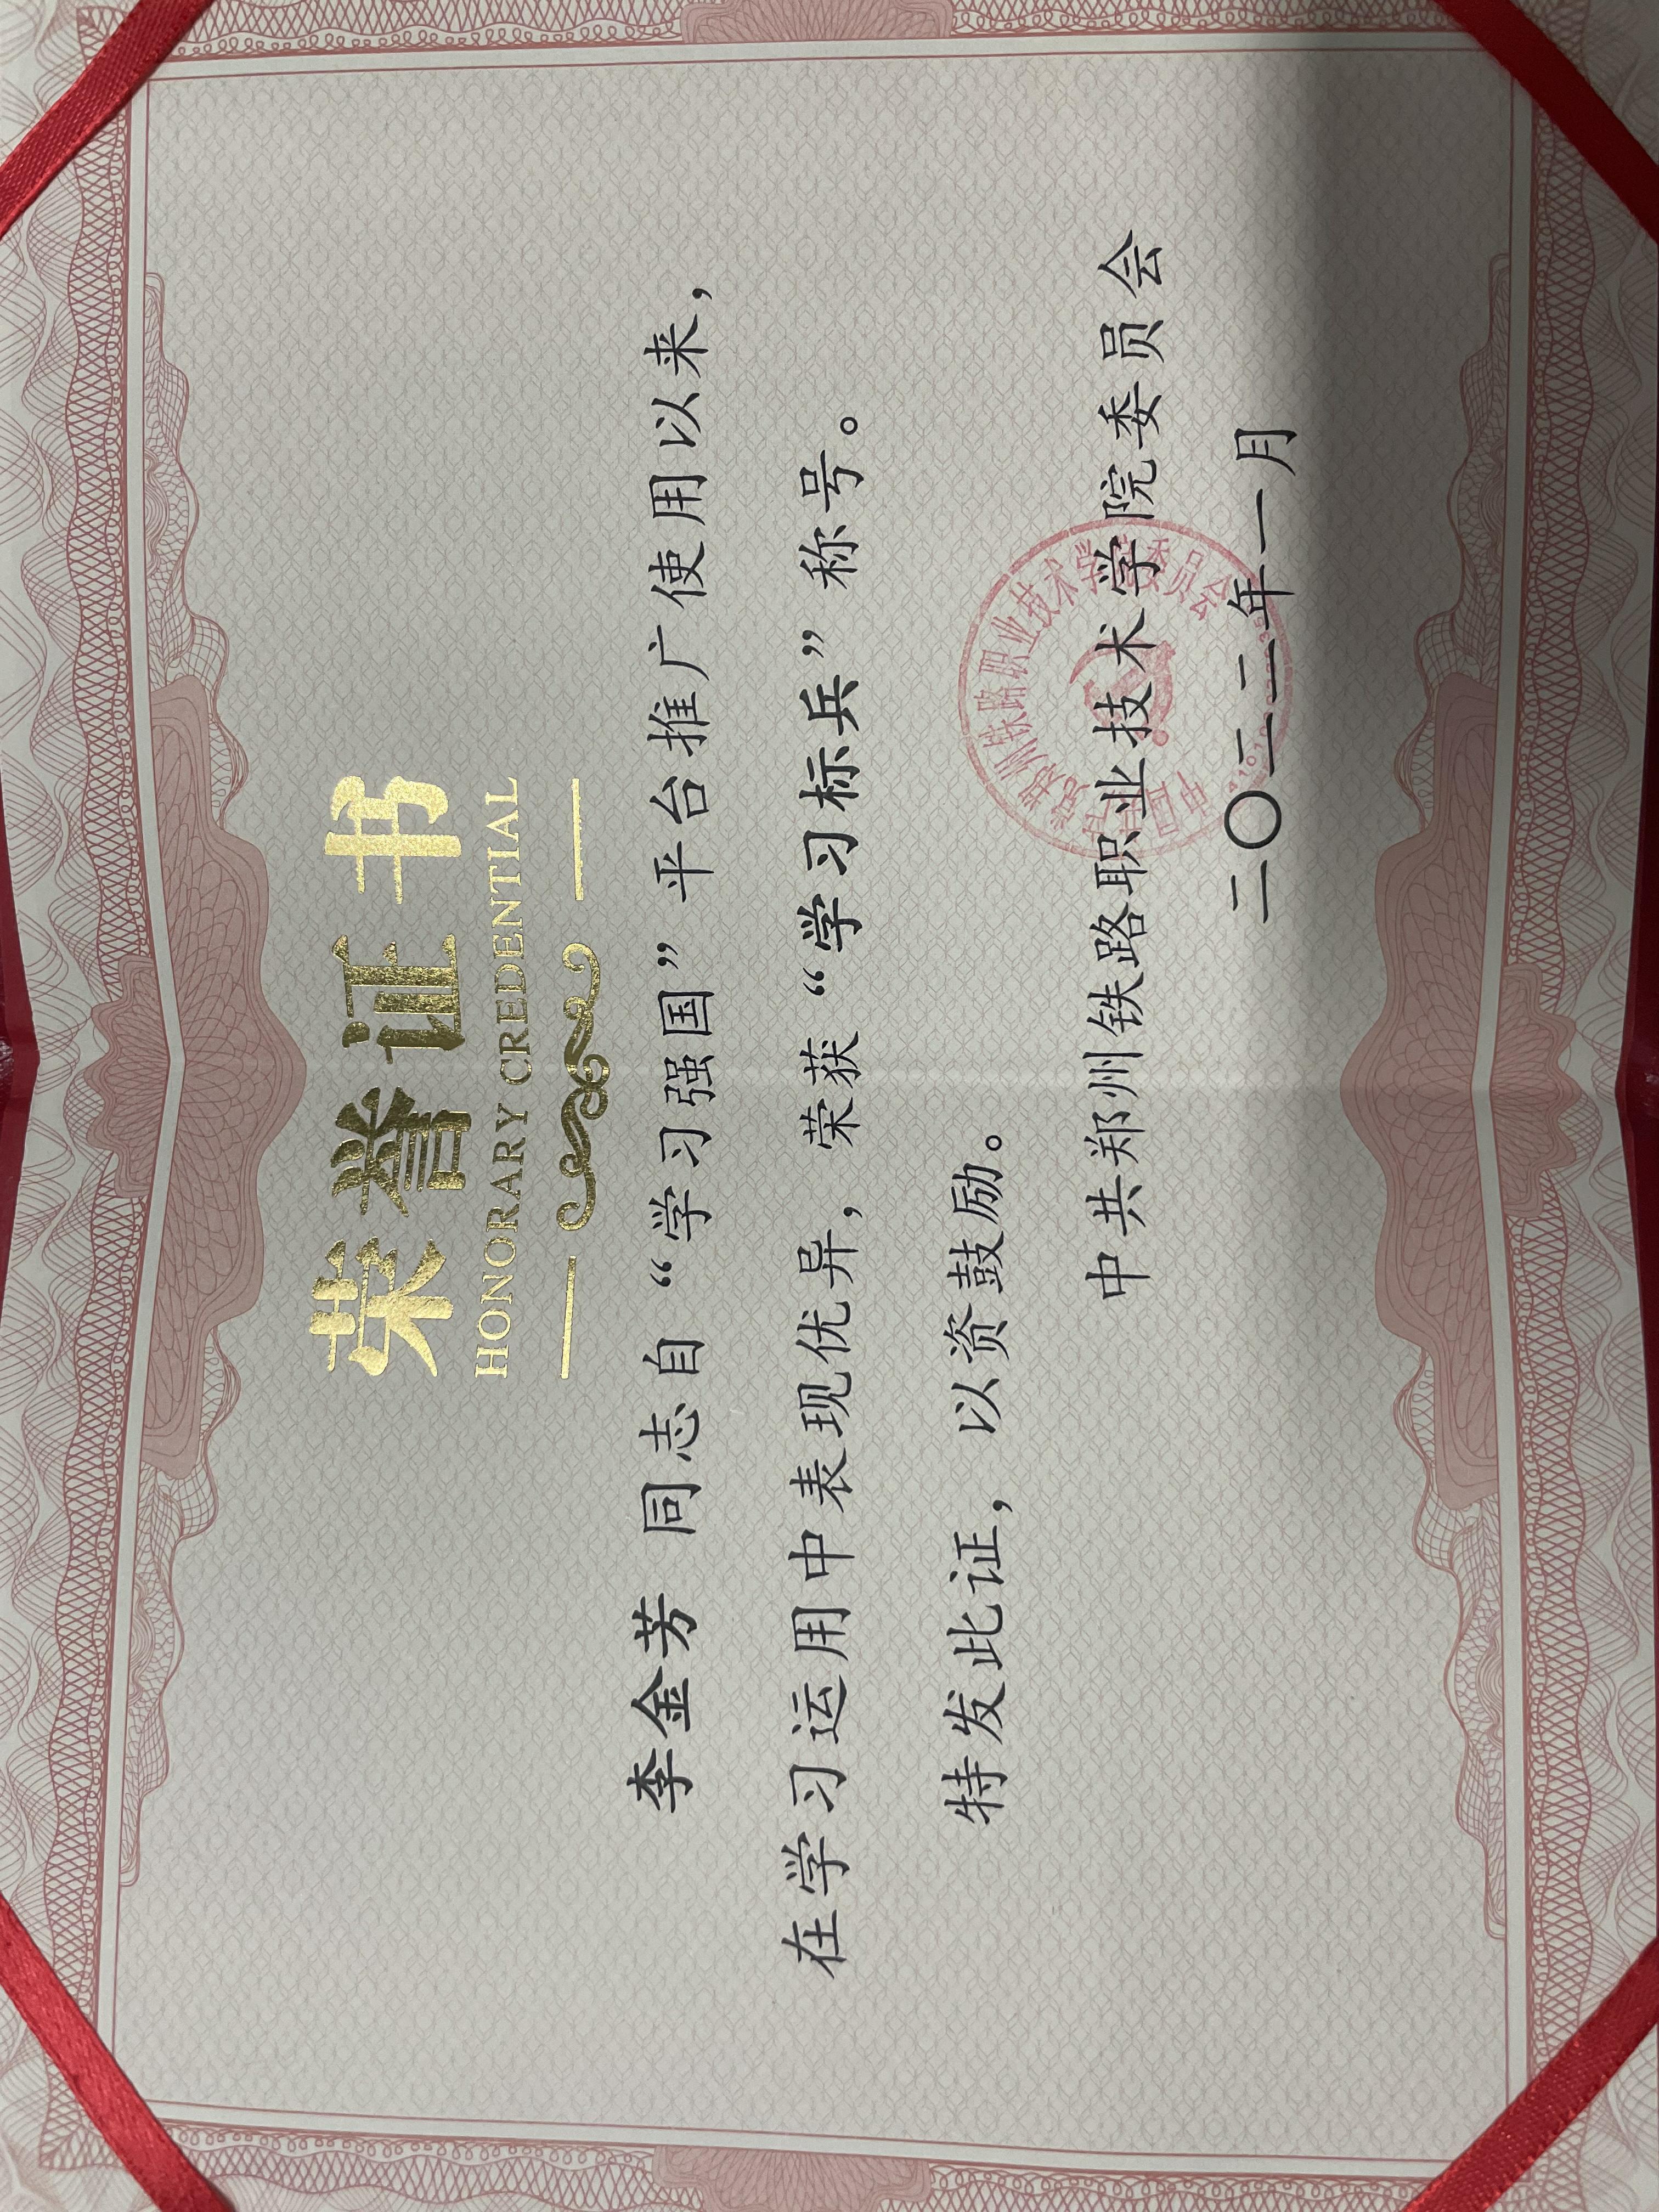 荣誉证书
HONORARY CREDENTIAL
李金芳 同志自“学习强国”平台推广使用以来，
在学习运用中表现优异，荣获“学习标兵”称号。
特发此证，以资鼓励。
中共郑州铁路职业技术学院委员会
二〇二二年一月